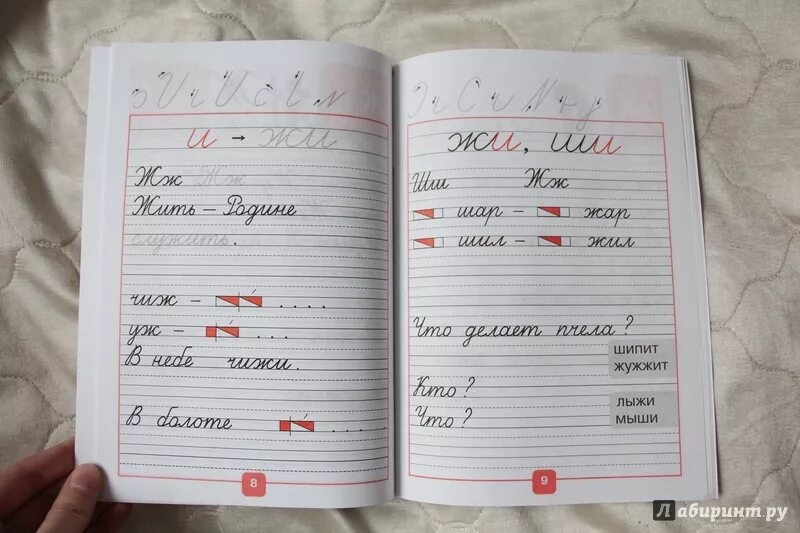 и → жи
Жж Жж
Жить – Родине
служить.
чиж – ....
уж – ...
В небе чижи.
В болоте ....
8
жи, ши
Шш Жж
шар – жар
шил – жил
Что делает пчела?
шипит
жужжит
Кто?
Что?
лыжи
мыши
9
Лабиринт.ру